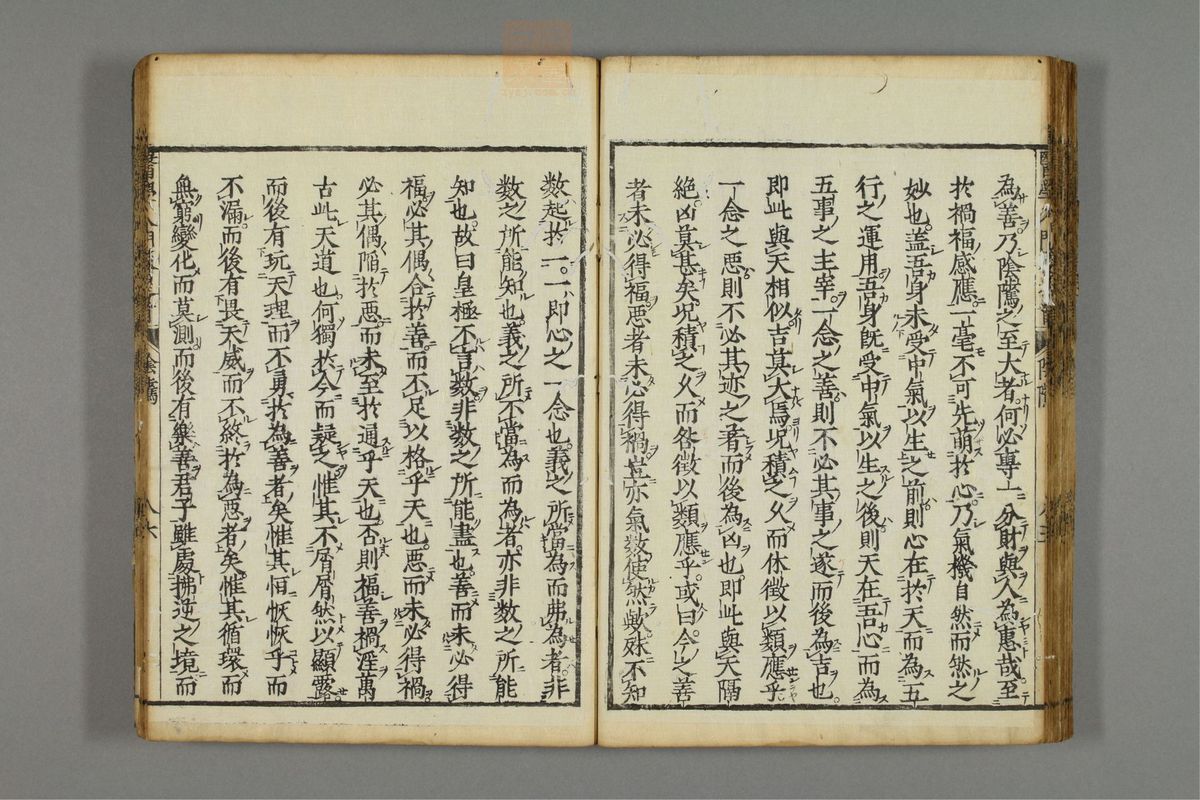 為善乃陰騭之至大者何必專一分財與人為惠哉至
於禍福感應一毫不可先萌於心乃氣機自然而然之
妙也蓋吾身未受中氣以生之前則心在於天而為五
行之運用吾身既受中氣以生之後則天在吾心而為
五事之主宰一念之善則不必其事之遂而後為吉也
即此與天相似吉莫大焉况積之久而休徵以類應乎
一念之惡則不必其迹之著而後為凶也即此與天隔
絶凶莫甚矣况積之久而咎徵以類應乎或曰今之善
者未必得福惡者未必得禍豈亦氣数使然歟殊不知
数起於一一即心之一念也義之所當為而弗為者非
数之所能知也義之所不當為而為者亦非数之所能
知也故曰皇極不言数非数之所能盡也善而未必得
福必其偶合於善而不足以格乎天也惡而未必得禍
必其偶陷於惡而未至於通乎天也否則福善禍淫萬
古此天道也何獨於今而疑之惟其不屑屑然以顯露
而後有玩天理而不勇於為善者矣惟其恢恢乎而
不漏而後有畏天威而不終於為惡者矣惟其循環而
無窮變化而莫測而後有樂善君子雖處拂逆之境而
陰騭